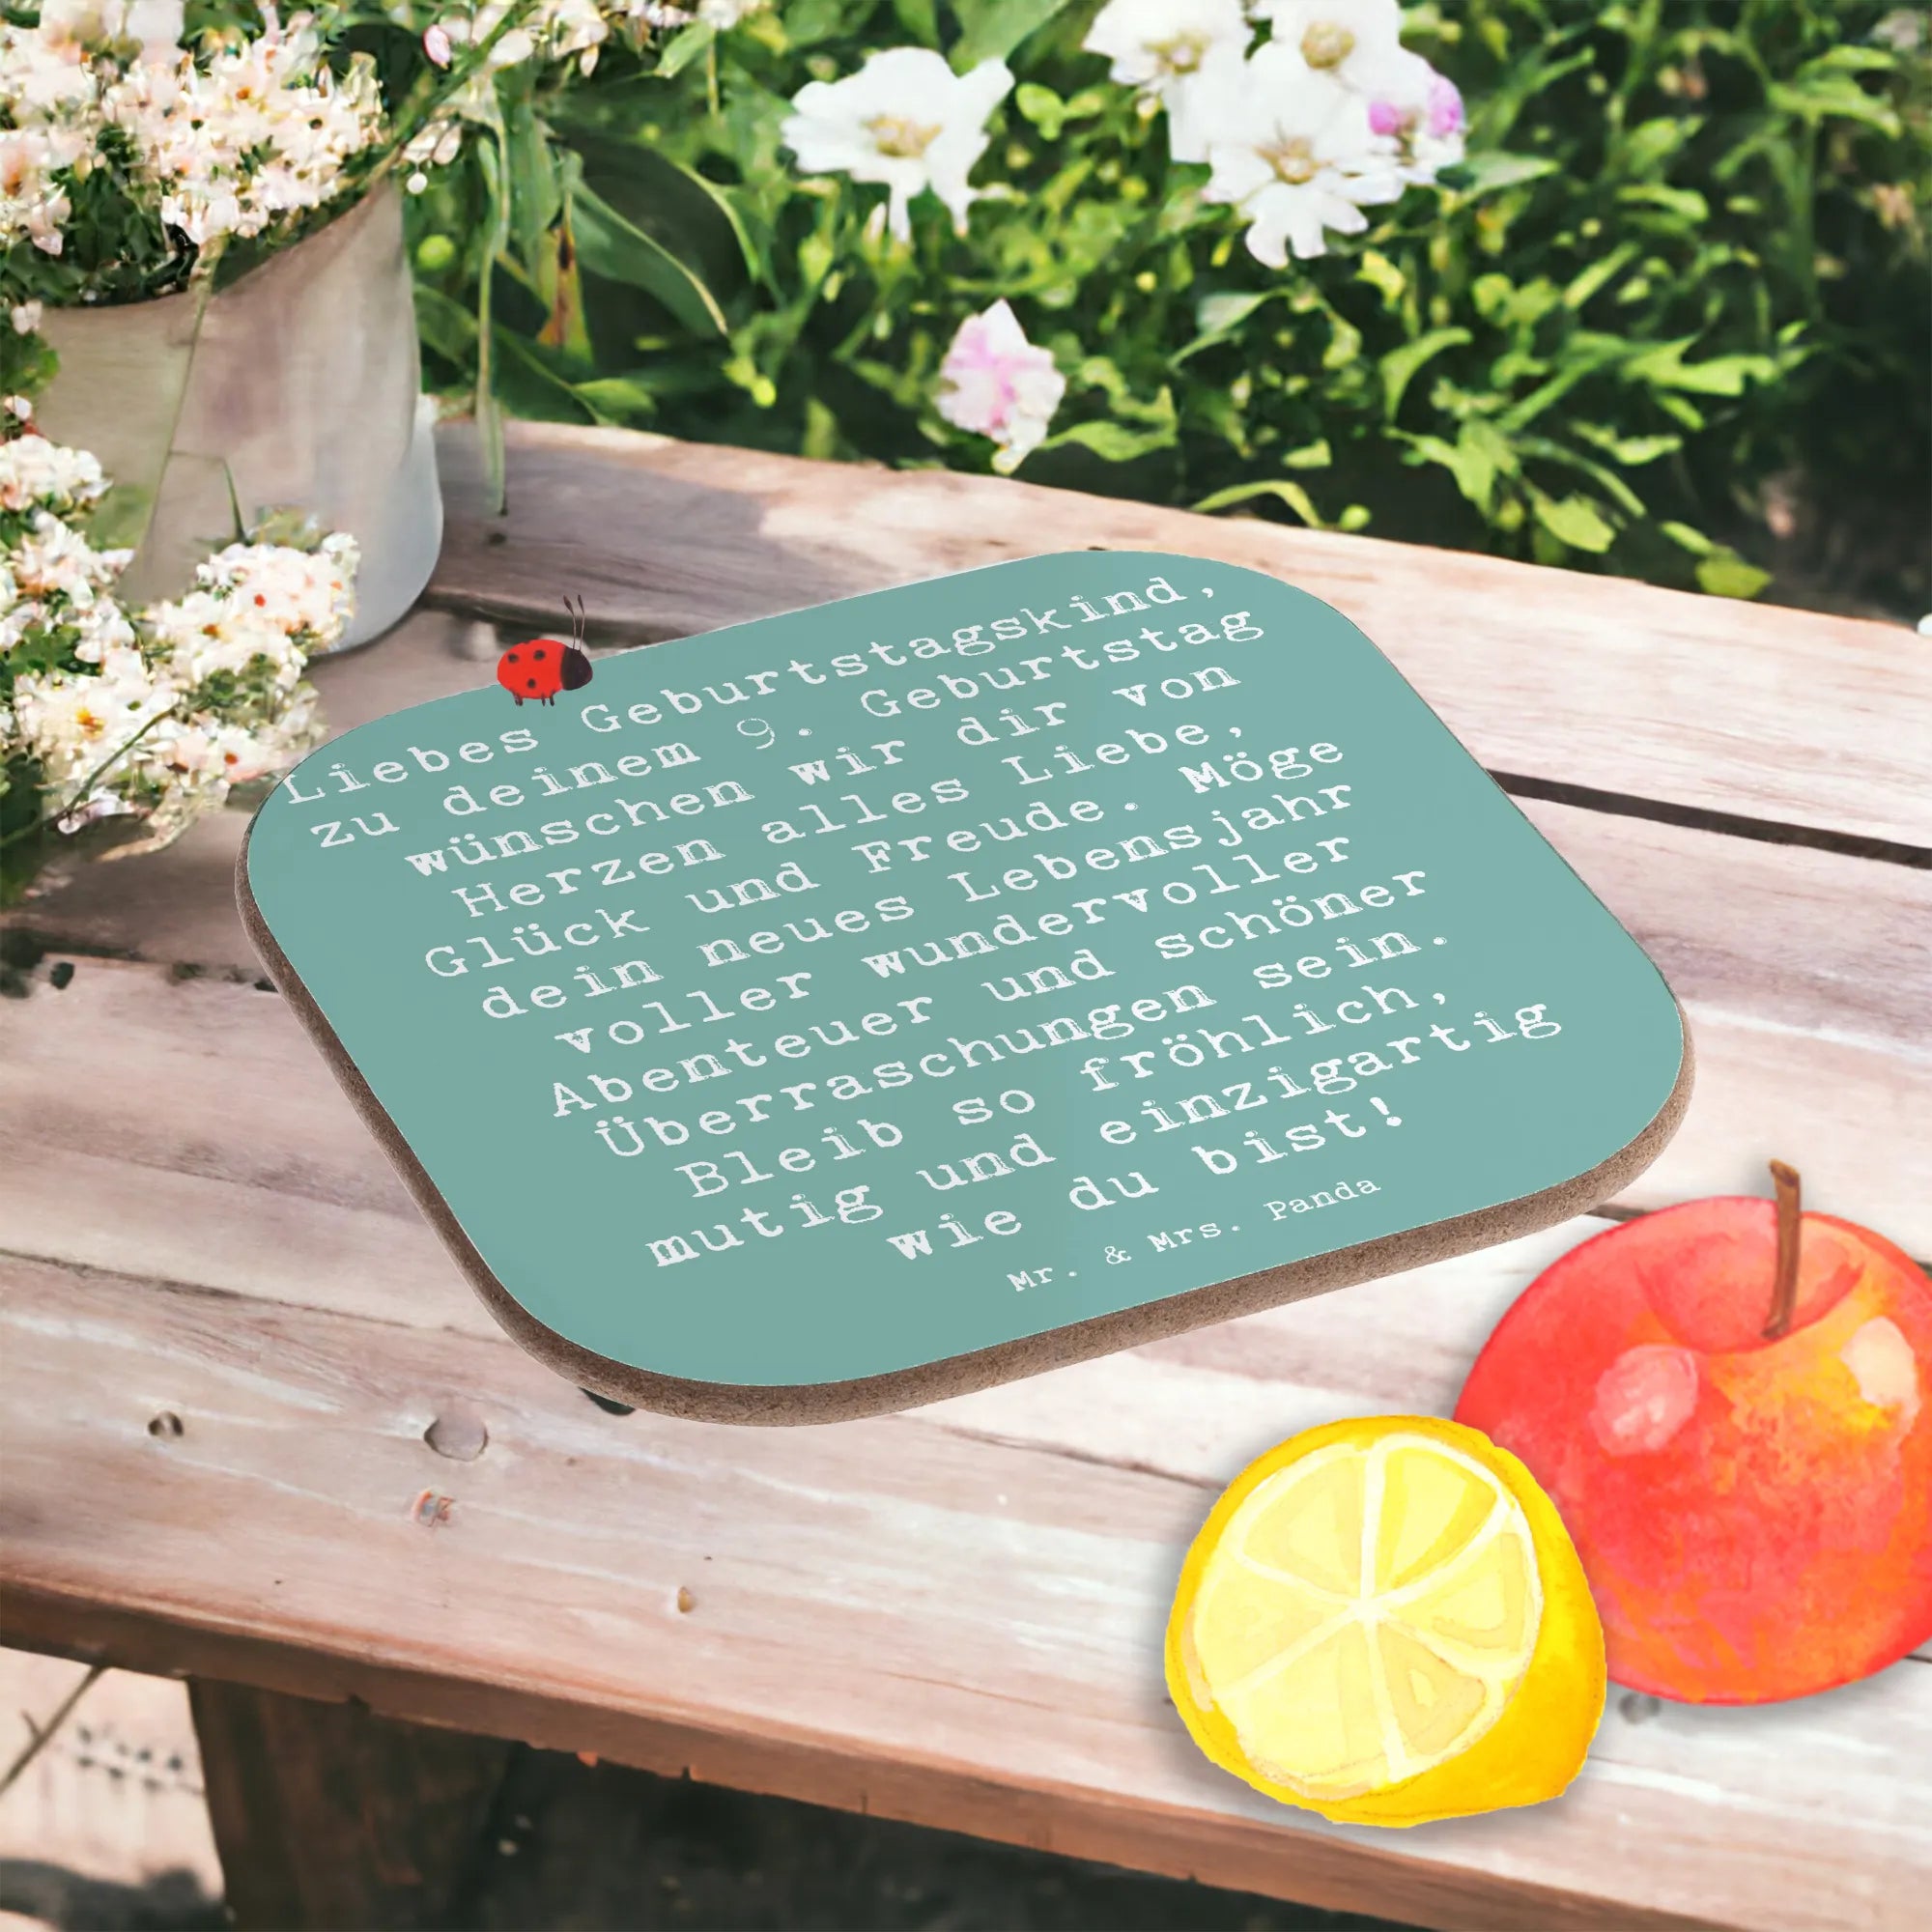 Liebes Geburtstagskind,
zu deinem 9. Geburtstag
wünschen wir dir von
Herzen alles Liebe,
Glück und Freude. Möge
dein neues Lebensjahr
voller wundervoller
Abenteuer und schöner
Überraschungen sein.
Bleib so fröhlich,
mutig und einzigartig
wie du bist!
Mr. & Mrs. Panda